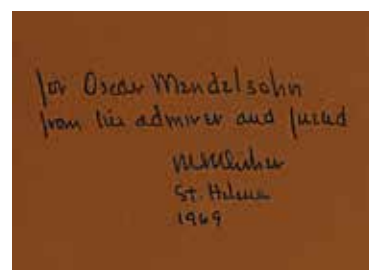 for Oscar Mendelsohn
from his admirer and friend
St. Helena
1969